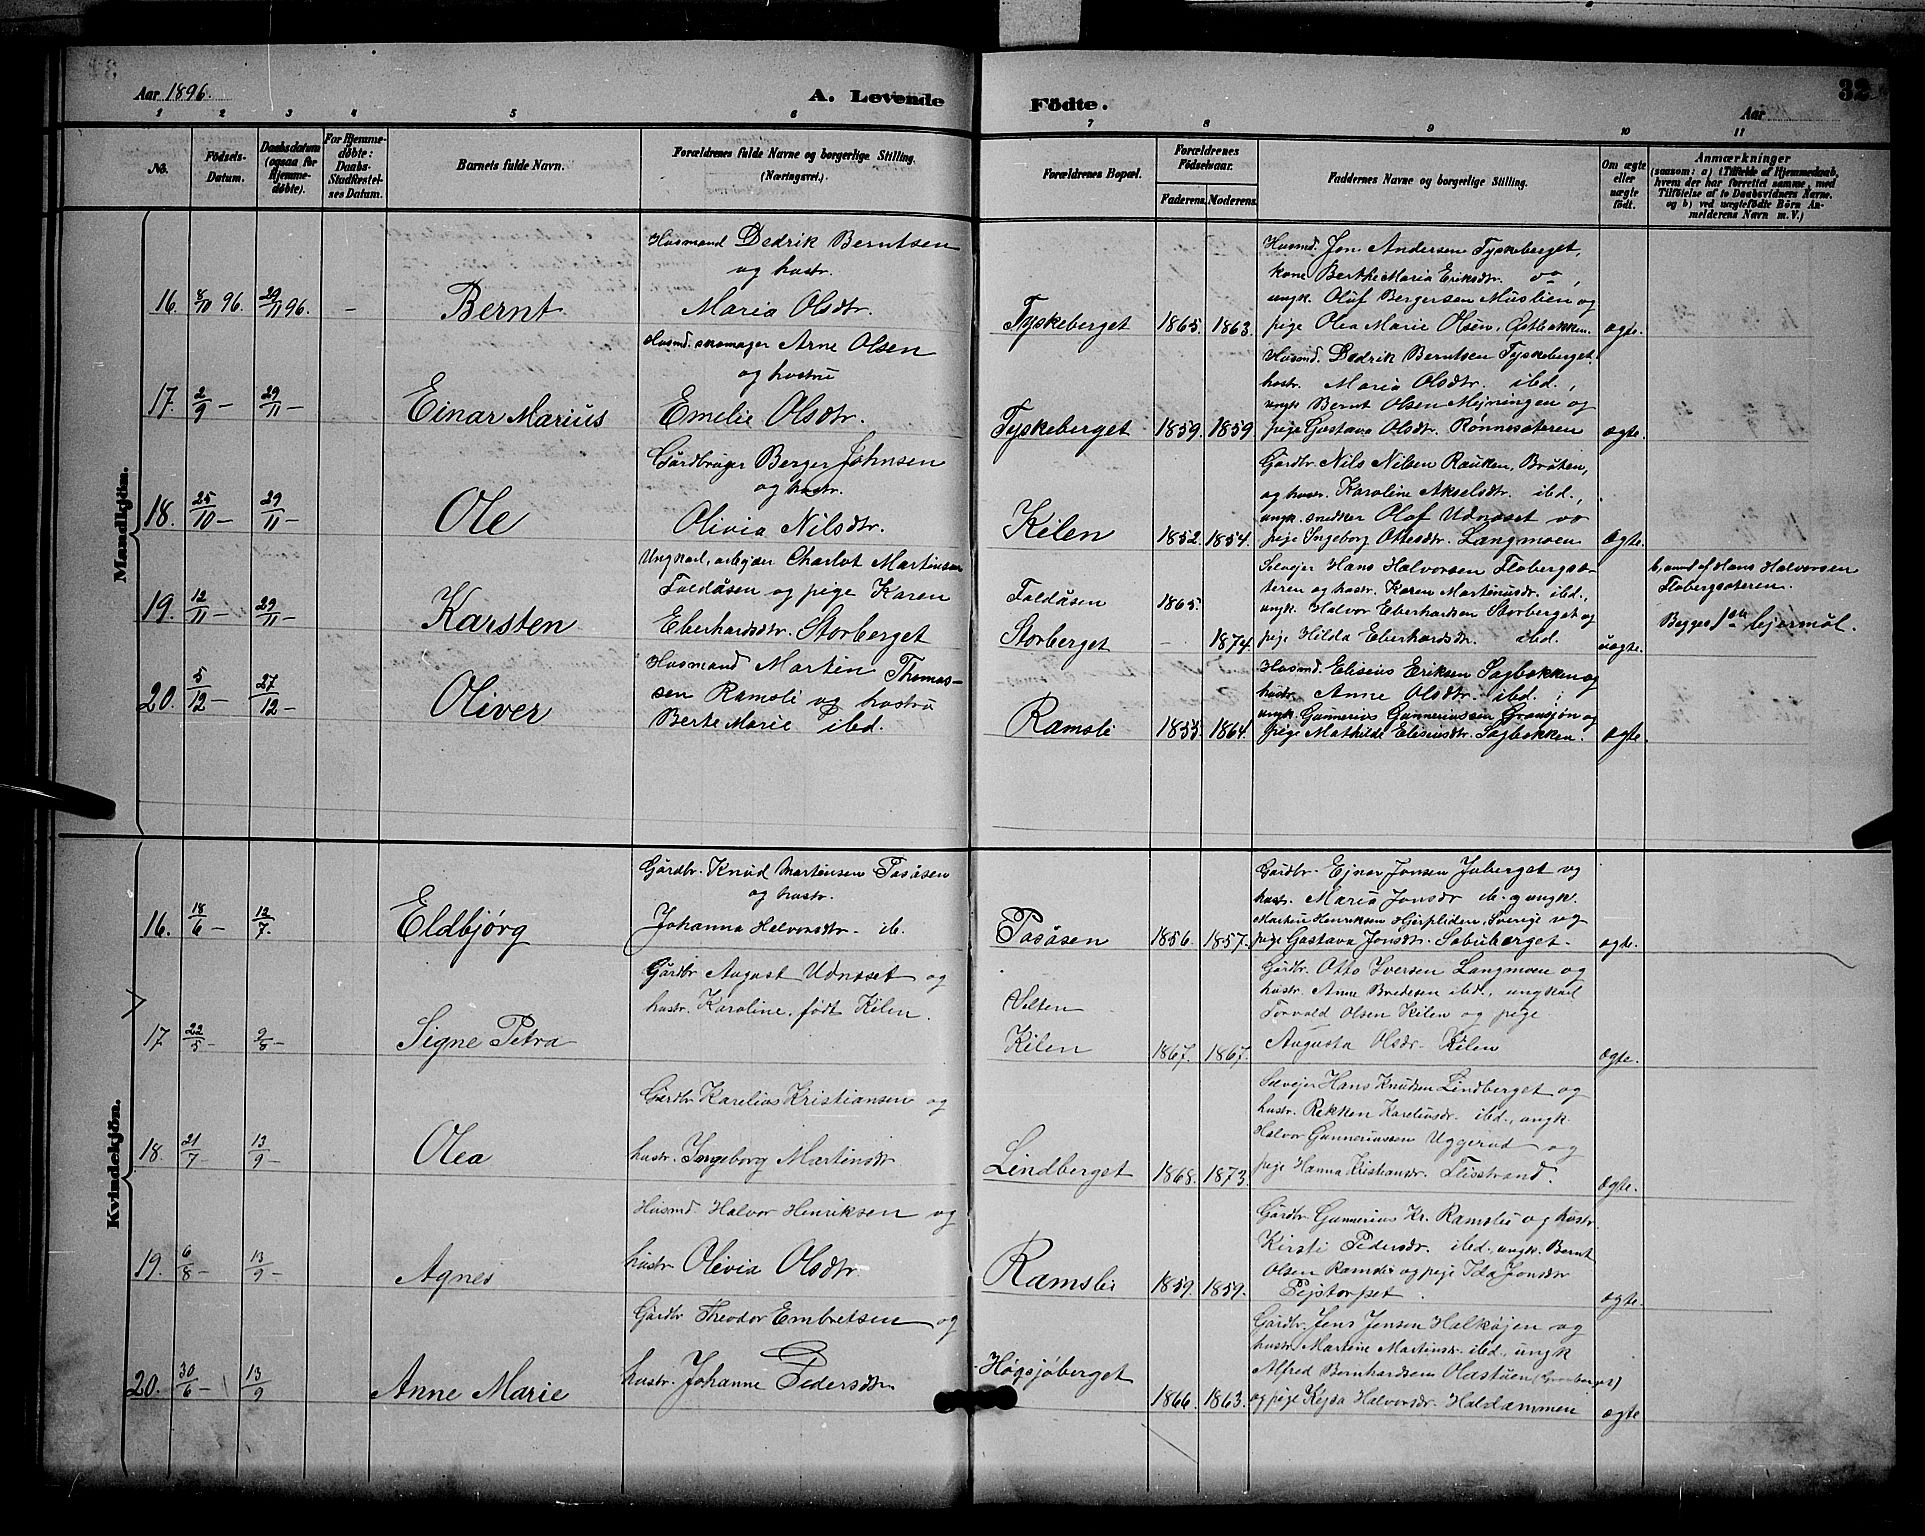 Aar 1896.
A. Levende Födte.
Aar
32
1 2 3 4 5 6 7 8 9 10 11
No.
Födsels-
Datum.
Daabsdatum
(ogsaa for
Hjemme-
döbte).
For Hjemme-
döbte:
Daabs-
Stadfæstel-
ses Datum.
Barnets fulde Navn.
Forældrenes fulde Navne og borgerlige Stilling.
(Næringsvei.)
Forældrenes Bopæl.
Forældrenes
Födselsaar.
Faderens. Moderens.
Faddernes Navne og borgerlige Stilling.
Om ægte
eller
uægte
födt.
Anmærkninger
(saasom: a) i Tilfælde af Hjemmedaab,
hvem der har forrettet samme, med
Tilföielse af to Daabsvidners Navne.
og b) ved uægtefödte Börn An-
melderens Navn m. V.)
Mandkjön.
16. 8/10 96. 29/11 96. - Bernt
Husmand Dedrik Berntsen
og hustr.
Maria Olsdtr.
Tyskeberget 1865. 1863.
Husmd. Jon Andersen Tyskeberget,
kone Berthe Maria Eriksdtr.
ungk. Oluf Bergersen Muslien og
pige Olea Marie Olsen, Østbakken.
ægte.
17. 2/9 - 29/11 - Einar Marius
Husmd. skomager Arne Olsen
og hustru
Emelie Olsdtr.
Tyskeberget 1859. 1859
Husmd. Dedrik Berntsen Tyskeberget
hustr. Maria Olsdtr. ibd.,
ungk Bernt Olsen Mejningen og
pige Gustava Olsdtr. Rønnesæteren
ægte.
18. 25/10 - 29/11 - Ole
Gårdbruger Berger Johnsen
og hustr.
Olivia Nilsdtr.
Kilen 1852. 1854.
Gårdbr. Nils Nilsen Rauken, Bråten,
og hustr. Karoline Akselsdtr. ibd.,
ungk. snedker Olaf Udnæset
pige Ingeborg Ottesdtr. Langmoen
Ægte.
19. 12/11 - 29/11 - Karsten
Ungkarl, arbejder Charlot Martinsen
Faldåsen og pige Karen
Eberhardsdtr. Storberget
Faldåsen 1865.
Storberget - 1874.
Selvejer Hans Halvorsen Flobergsæ-
teren og hustr. Karen Martinusdr. ibd.,
ungk. Halvor Eberhardsen Storberget og
pige Hilda Eberhardsdr. ibd.
uægte.
b, anmd af Hans Halvorsen
Flobergsæteren.
Begges 1ste lejermål.
20. 5/12 - 27/12 - Oliver
Husmand Martin Thomas-
sen Ramsli og hustru
Berte Marie ibd.
Ramsli 1855. 1864.
Husmd. Elisius Eriksen Sagbakken og
hustr. Anne Olsdtr. ibd.
ungk. Gunnerius Gunneriussen Gransjøn og
pige Mathilde Elisiusdtr. Sagbakken.
ægte.
Kvindekjön.
16. 18/6 - 12/7. Eldbjørg
Gårdbr. Knud Martinsen Pasåsen
og hustr.
Johanna Halvorsdtr. ib.
Pasåsen 1856. 1857.
Gårdbr. Ejnar Jonsen Juberget og
hustr. Maria Jonsdr ib. og ungk.
Martin Henriksen Hjerpliden, Sverige og
pige Gustava Jonsdtr. Sabuberget.
ægte.
17 22/5 - 2/8 - Signe Petra
Gårdbr August Udnæset og
hustr. Karoline, født Kilen.
Velten
Kilen 1867. 1867.
Gårdbr. Otto Iversen Langmoen og
hustr. Anne Bredesen ibd., ungkarl
Torvald Olsen Kilen og pige
Augusta Olsdr. Kilen
ægte.
18. 21/7 - 13/9 - Olea
Gårdbr Karelius Kristiansen og
hustr. Ingeborg Martinsdr
Lindberget 1868. 1873.
Selvejer Hans Knudsen Lindberget og
hustr. Rekken Kareliusdr. ibd., ungk.
Halvor Gunneriussen Uggerud og
pige Hanna Kristiansdr. Flisstrand.
ægte.
19. 6/8 - 13/9 - Agnes
Husmd Halvor Henriksen og
hustr Olivia Olsdtr
Ramsli 1859. 1859.
Gårdbr Gunnerius Kr. Ramsli og hustr.
Kirsti Pedersdr. ibd., ungk. Bernt
Olsen Ramsli og pige Ida Jonsdtr
Pejstorpet.
ægte.
20. 30/6 - 13/9 Anne Marie
Gårdbr Theodor Embretsen og
hustr. Johanne Pedersdtr
Høgsjøberget 1866. 1863.
Gårdbr. Jens Jensen Halkøjen og
hustr Martine Martinsdr. ibd., ungk
Alfred Bernhardsen Olastuen
og pige Kejsa Halvorsdr. Haldammen
ægte